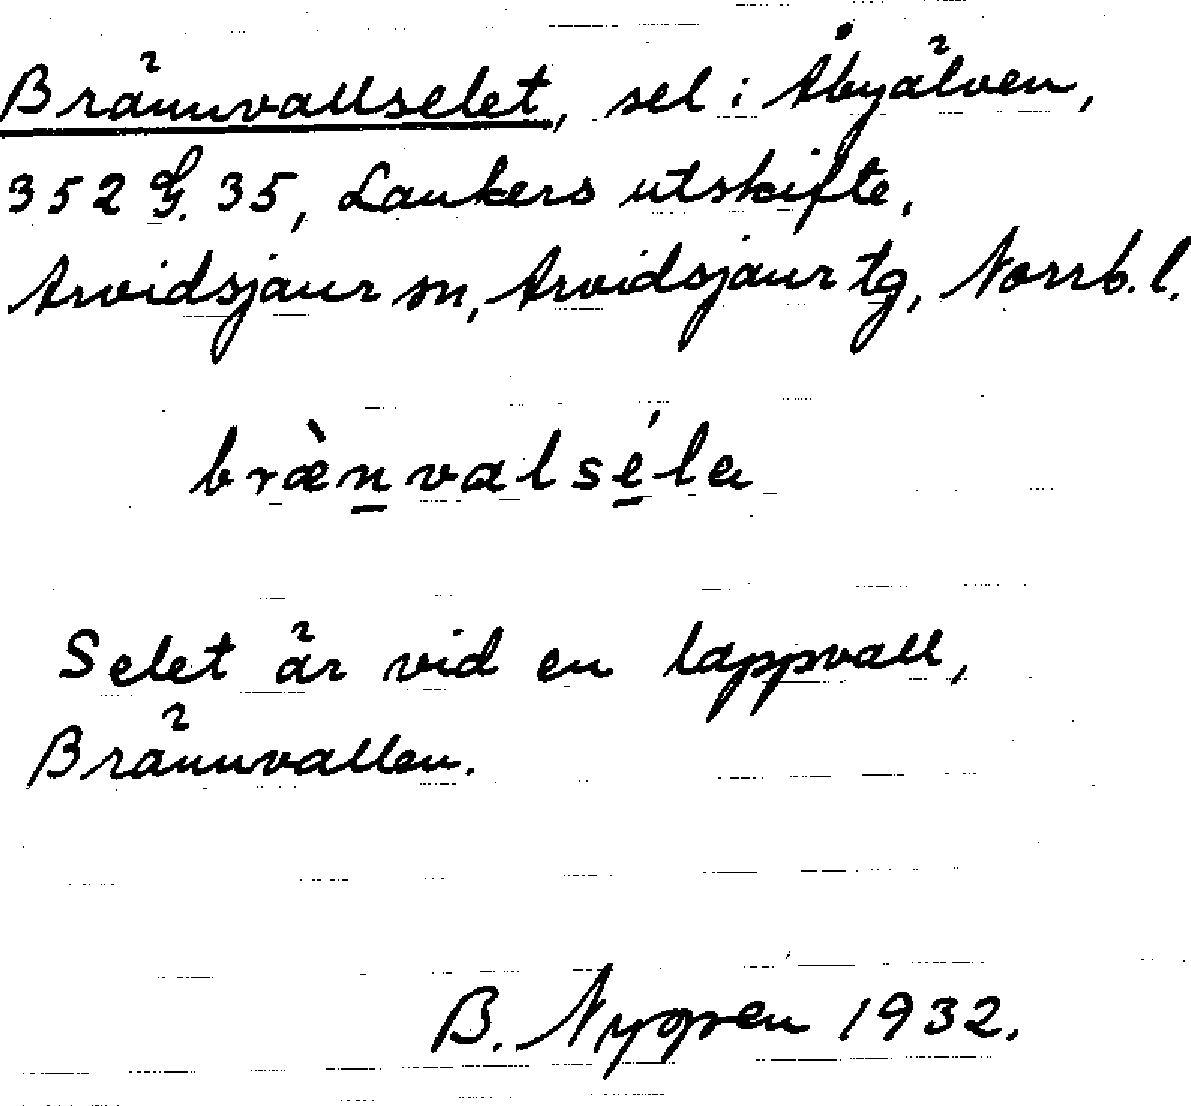 Brännvallselet, sel i Åbyälven,
352 G. 35, Laukers utskifte,
Arvidsjaur sn, Arvidsjaur tg, Norrb. l.
bræ̀nvalséla
Selet är vid en lappvall,
Brännvallen.
B. Nygren 1932.